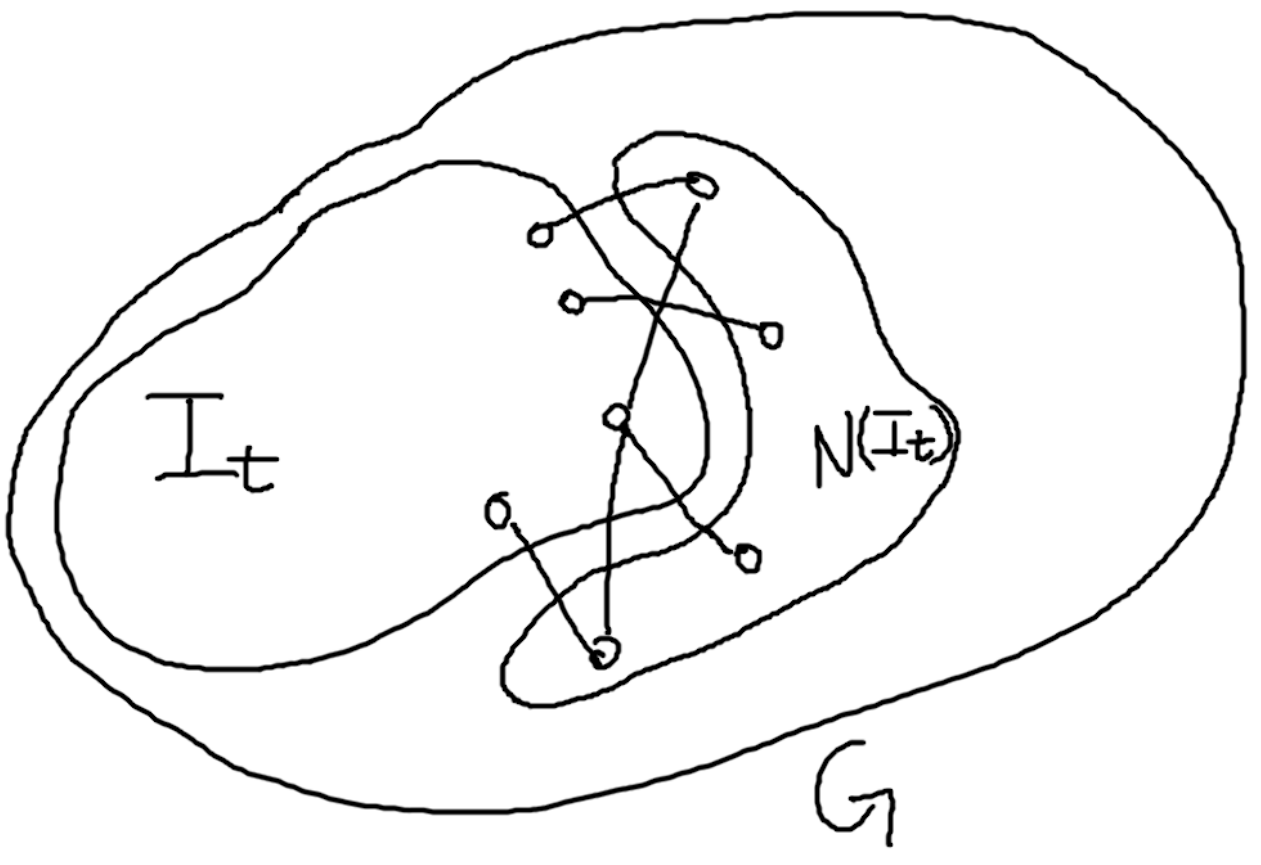 I_t
N(I_t)
G